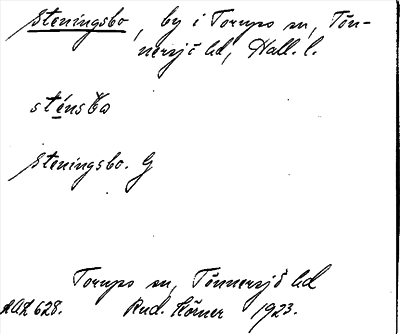 Steningsbo, by i Torups sn, Tön-
nersjö hd, Hall. l.
Steningsbo. G
Torups sn, Tönnersjö hd
628. Rud. Körner 1923.